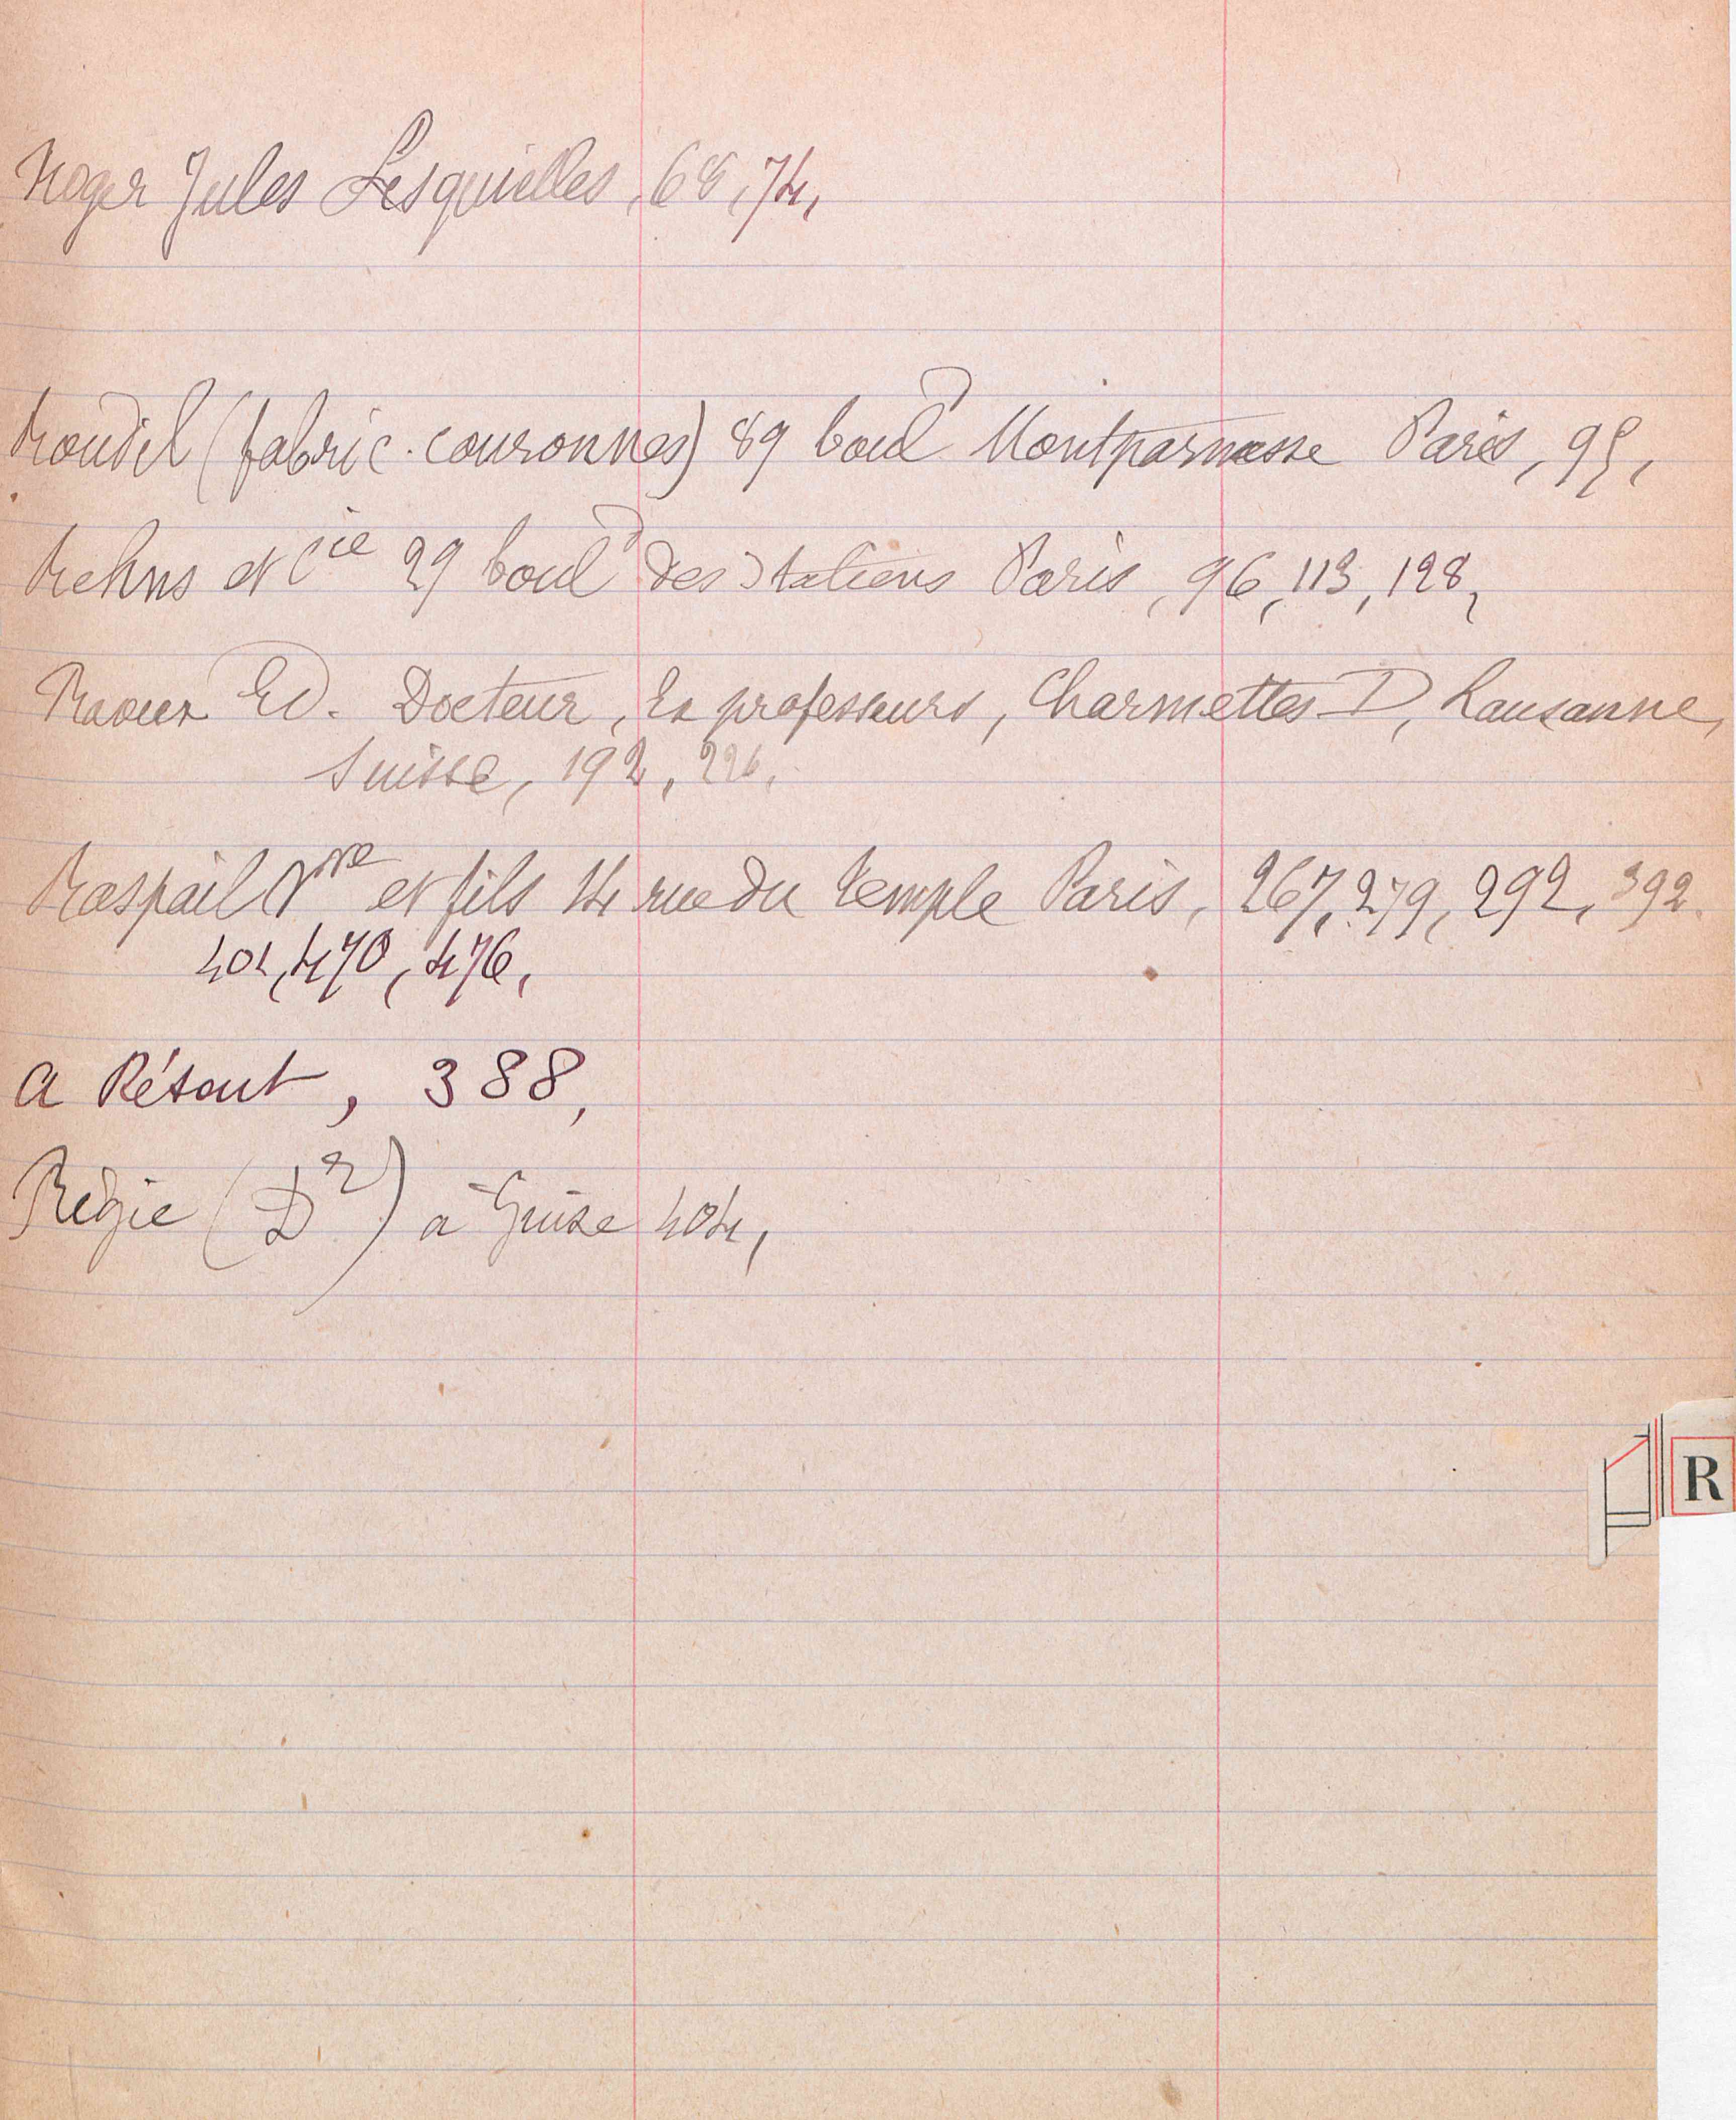 Roger Jules Lesquielles, 68, 74,
Roudil (fabric. couronnes) 89 boulᵈ Montparnasse Paris, 95,
Rehns et Cie 29 boulᵈ des Italiens Paris, 96, 113, 128,
Raoux Ed. Docteur, Ex professeurs, Charmettes D, Lausanne,
Suisse, 192, 226,
Raspail Vve et fils 14 rue du Temple Paris, 267, 279, 292, 392.
401, 470, 476,
A Résout, 388,
Régie (D²) à Guise 404,
R